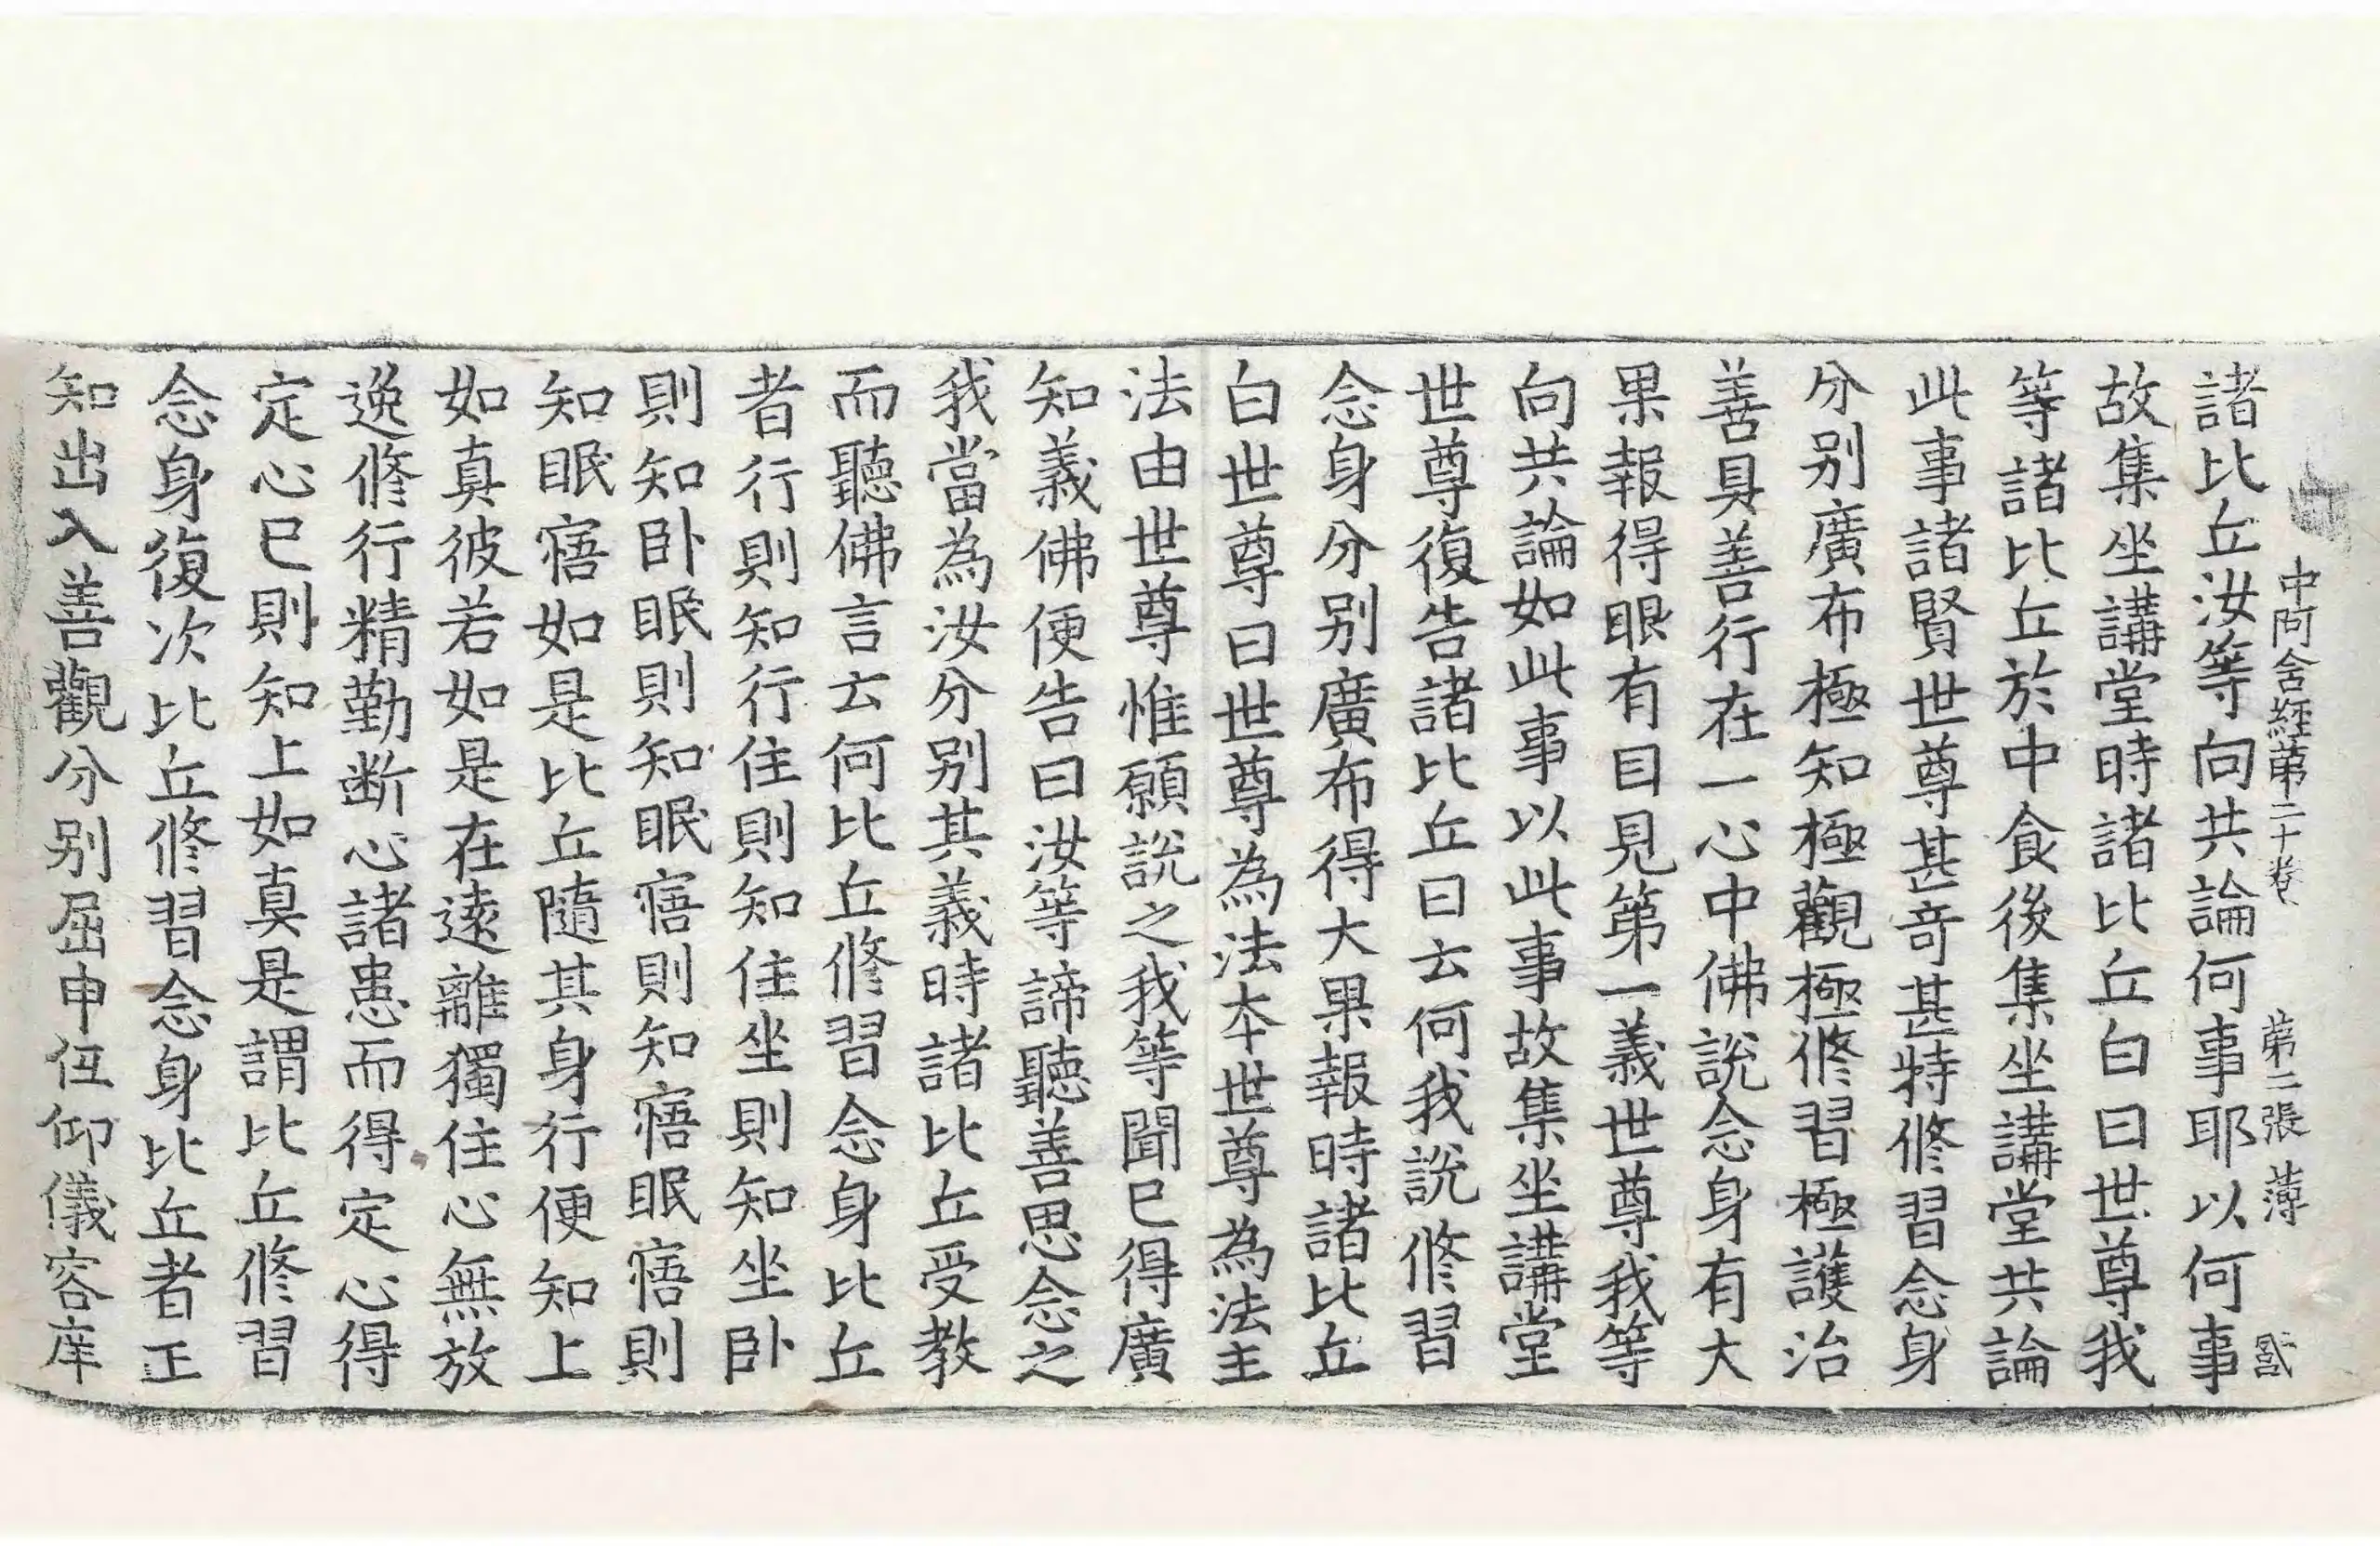 中阿含經第二十卷 第二張 薄
諸比丘汝等向共論何事耶以何事
故集坐講堂時諸比丘白曰世尊我
等諸比丘於中食後集坐講堂共論
此事諸賢世尊甚奇甚特修習念身
分別廣布極知極觀極修習極護治
善具善行在一心中佛說念身有大
果報得眼有目見第一義世尊我等
向共論如此事以此事故集坐講堂
世尊復告諸比丘曰云何我說修習
念身分別廣布得大果報時諸比丘
白世尊曰世尊為法本世尊為法主
法由世尊惟願說之我等聞已得廣
知義佛便告曰汝等諦聽善思念之
我當為汝分別其義時諸比丘受教
而聽佛言云何比丘修習念身比丘
者行則知行住則知住坐則知坐臥
則知臥眠則知眠寤則知寤眠寤則
知眠寤如是比丘隨其身行便知上
如真彼若如是在遠離獨住心無放
逸修行精勤断心諸患而得定心得
定心已則知上如真是謂比丘修習
念身復次比丘修習念身比丘者正
知出入善觀分別屈申伍仰儀容庠